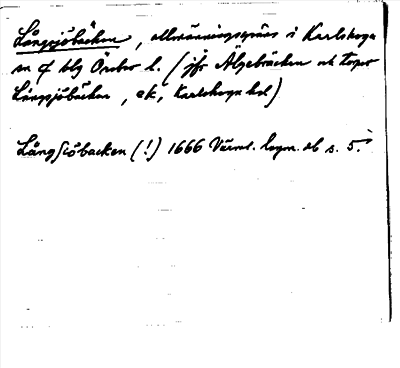 Långsjöbäcken, allmänningsgräns i Karlskoga
sn o blg Örebro l. (jfr Älgebäcken och topo
Långsjöbäcken, ek, Karlskoga bd)
LångSiöbacken (!) 1666 Värml. lagm. db s. 5.